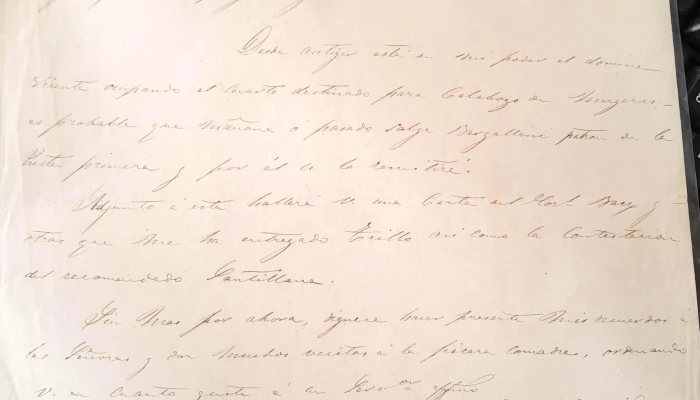 Desde antiyer está en mi poder el domine
Vicente ocupando el cuarto destinado para Calabozo de Mugeres,
es probable que mañana ó pasado salga Bergallini patron de la
primera y por él le lo remitiré.
Adjunto á esta hallará V. una Carta del y
otras que me ha entregado Trillo asi como la Contestacion
del recomendado Santillana.
Sin mas por ahora, dignese hacer presente mis recuerdos á
las Señoras y dar muchos á la picara comadre, ordenando
V. en cuanto guste á su